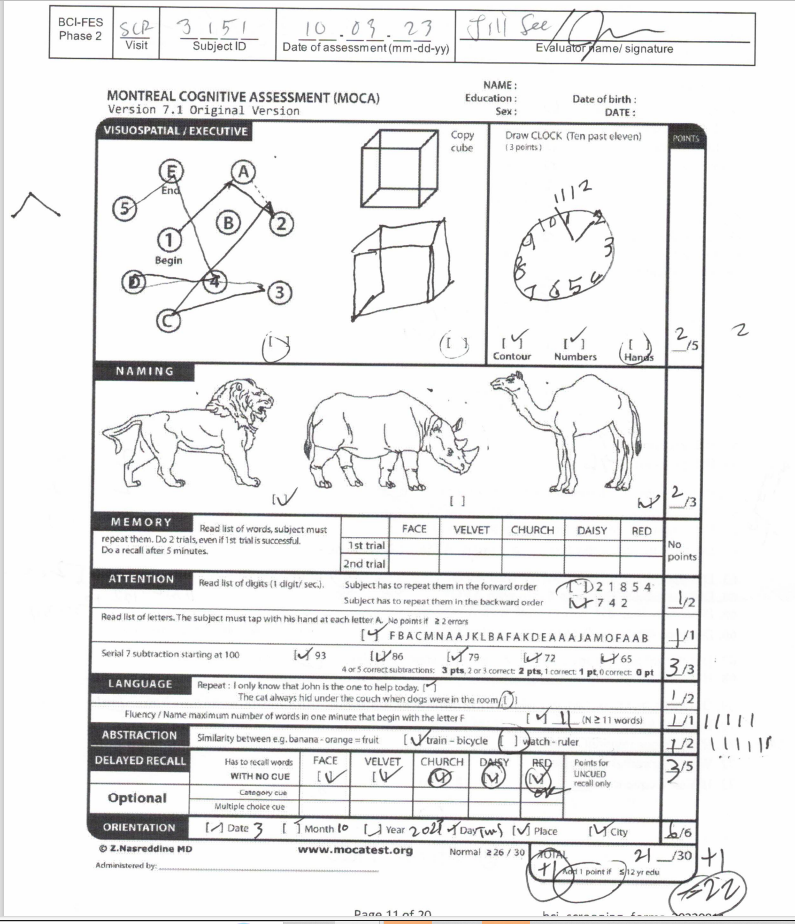 BCI-FES
Phase 2
SCR
Visit
3 1 5 1
Subject ID
10 . 03 . 23
Date of assessment (mm-dd-yy)
Jill See
Evaluator name/ signature
MONTREAL COGNITIVE ASSESSMENT (MOCA)
Version 7.1 Original Version
NAME :
Education :
Sex :
Date of birth :
DATE :
VISUOSPATIAL / EXECUTIVE
Copy
cube
Draw CLOCK (Ten past eleven)
(3 points)
POINTS
E
End
A
5
B
2
1
Begin
D
4
3
C
11 12
10 1 2
9 3
8 4
7 6 5
[ ]
[ ]
[✓]
Contour
[✓]
Numbers
[ ]
Hands
2/5
2
NAMING
[✓]
[ ]
[✓]
2/3
MEMORY
Read list of words, subject must
repeat them. Do 2 trials, even if 1st trial is successful.
Do a recall after 5 minutes.
FACE VELVET CHURCH DAISY RED
1st trial
2nd trial
No
points
ATTENTION
Read list of digits (1 digit/ sec.).
Subject has to repeat them in the forward order [ ] 2 1 8 5 4
Subject has to repeat them in the backward order [✓] 7 4 2
1/2
Read list of letters. The subject must tap with his hand at each letter A. No points if ≥ 2 errors
[✓] F B A C M N A A J K L B A F A K D E A A A J A M O F A A B
1/1
Serial 7 subtraction starting at 100 [✓] 93 [✓] 86 [✓] 79 [✓] 72 [✓] 65
4 or 5 correct subtractions: 3 pts, 2 or 3 correct: 2 pts, 1 correct: 1 pt, 0 correct: 0 pt
3/3
LANGUAGE
Repeat : I only know that John is the one to help today. [✓]
The cat always hid under the couch when dogs were in the room. [ ]
1/2
Fluency / Name maximum number of words in one minute that begin with the letter F [✓] 11 (N ≥ 11 words)
1/1
ABSTRACTION
Similarity between e.g. banana - orange = fruit [✓] train – bicycle [ ] watch - ruler
1/2
DELAYED RECALL
Has to recall words
WITH NO CUE
FACE VELVET CHURCH DAISY RED
[✓] [✓] [✓] [✓] [✓]
Points for
UNCUED
recall only
3/5
Optional
Category cue
Multiple choice cue
ORIENTATION
[✓] Date 3 [ ] Month 10 [✓] Year 2023 [✓] Day Tues [✓] Place [✓] City
6/6
© Z.Nasreddine MD
www.mocatest.org
Normal ≥ 26 / 30
TOTAL 21 /30 +1
+1 Add 1 point if ≤ 12 yr edu
=22
Administered by:
Page 11 of 20